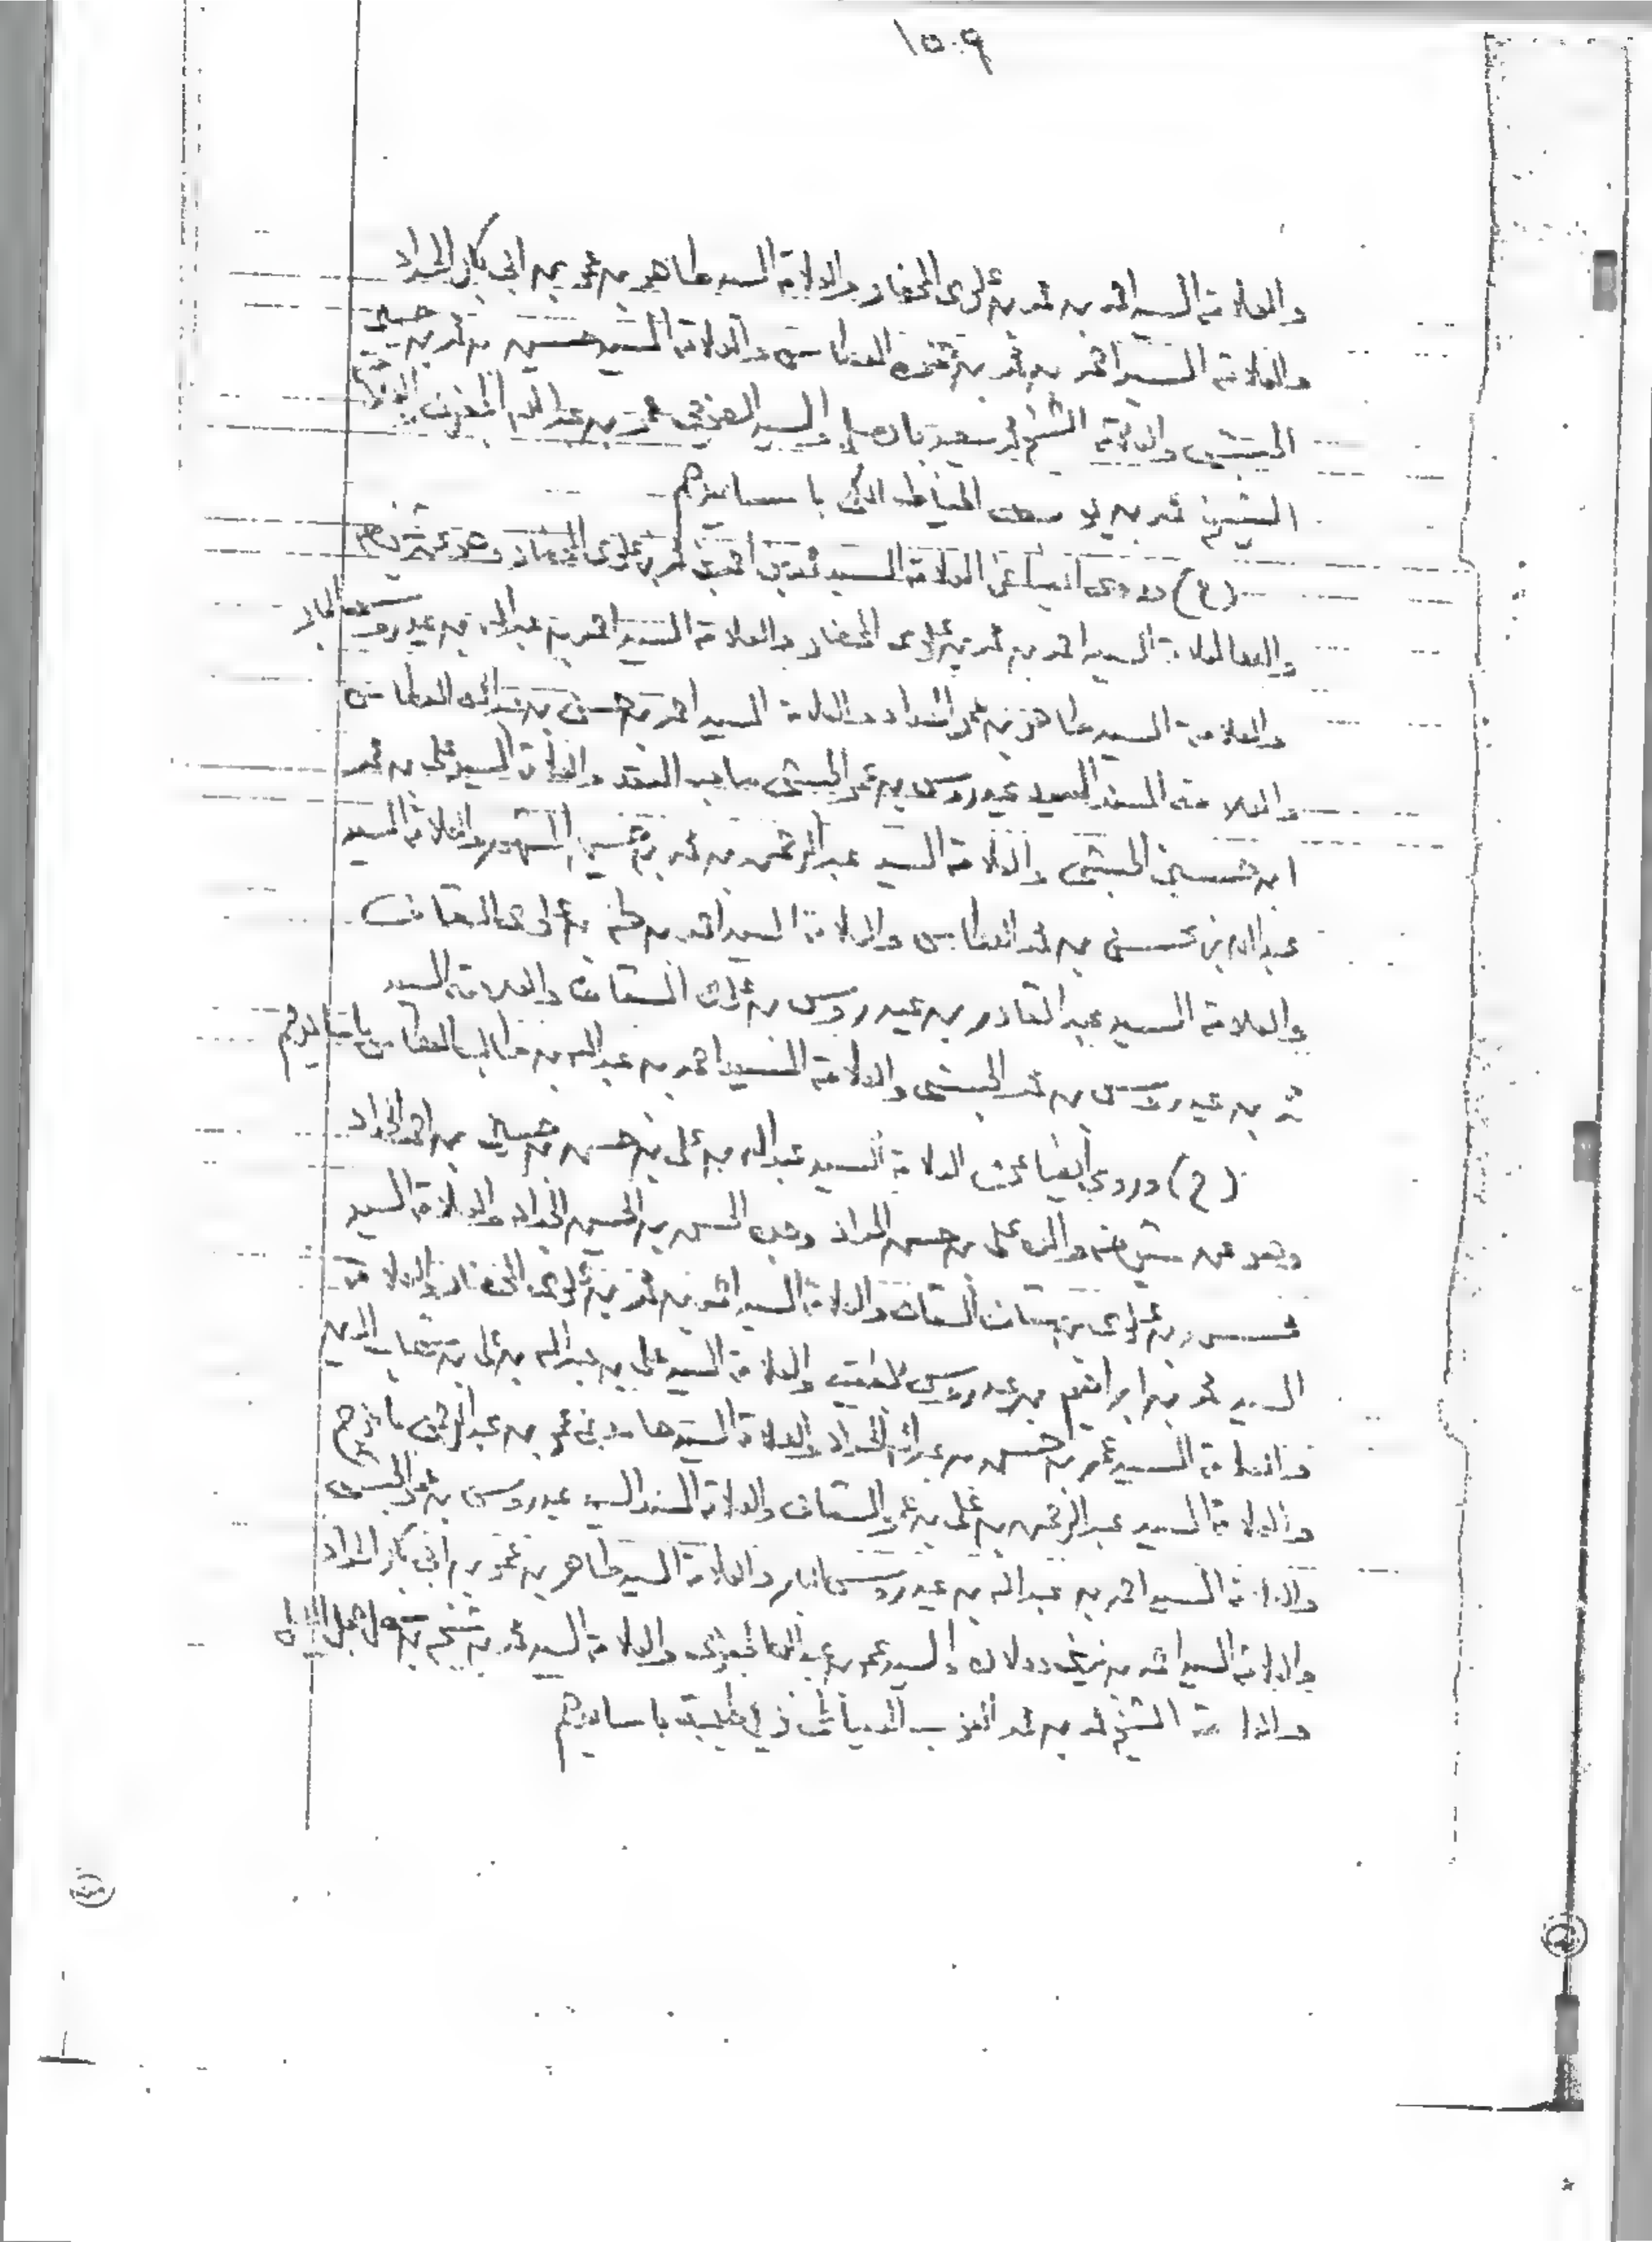 ١٥٠٩
والعلامة السيد احمد بن محمد بن علوى المحضار والعلامة السيد طاهر بن عمر بن ابي بكر الحداد
والعلامة السيد احمد بن محمد بن حمزه العطاس والعلامة السيد حسين بن محمد بن حسين
الحبشي والعلامة الشيخ محمد سعيد بابصيل والسيد عمر بن عبدالله
الشيخ محمد بن يوسف الخياط المكي باسانيدهم
(ع) وروى ايضا عن العلامة السيد محمد بن احمد بن محمد بن علوى المحضار وهو عن شيوخهم
والعلامة السيد احمد بن محمد بن علوى المحضار والعلامة السيد احمد بن عبدالله بن عيدروس البار
والعلامة السيد طاهر بن عمر الحداد والعلامة السيد احمد بن حسن بن عبدالله العطاس
والعلامة المسند السيد عيدروس بن عمر الحبشي صاحب العقد والعلامة السيد علي بن محمد
ابن حسين الحبشي والعلامة السيد عبدالرحمن بن محمد بن حسين المشهور والعلامة السيد
عبدالله بن محسن بن محمد العطاس والعلامة السيد احمد بن طه بن علوى السقاف
والعلامة السيد عبد القادر بن عيدروس بن علوى السقاف والعلامة السيد
محمد بن عيدروس بن محمد الحبشي والعلامة السيد احمد بن عبدالله بن طالب العطاس باسانيدهم
(ح) وروى ايضا عن العلامة السيد عبدالله بن علي بن حسن بن حسين بن احمد الحداد
وهو عن والده علي بن حسن الحداد وجده الحسن بن الحسين الحداد والعلامة السيد
بن علوى بن سقاف السقاف والعلامة السيد احمد بن محمد بن علوى المحضار والعلامة
السيد محمد بن ابراهيم بن عيدروس بلفقيه والعلامة السيد علي بن عبدالله بن علي بن شهاب الدين
والعلامة السيد محمد بن حسن بن عبدالله الحداد والعلامة السيد حامد بن عمر بن عبدالرحمن بافرج
والعلامة السيد عبدالرحمن بن علي بن عمر السقاف والعلامة المسند السيد عيدروس بن عمر الحبشي
والعلامة السيد احمد بن عبدالله بن عيدروس البار والعلامة السيد طاهر بن عمر بن ابي بكر الحداد
والعلامة السيد احمد بن زيني دحلان والسيد عمر بن عبدالله الجفري والعلامة السيد محمد بن شيخ بن سهل جمل الليل
والعلامة الشيخ محمد بن محمد العزب الدمياطي نزيل طيبة باسانيدهم